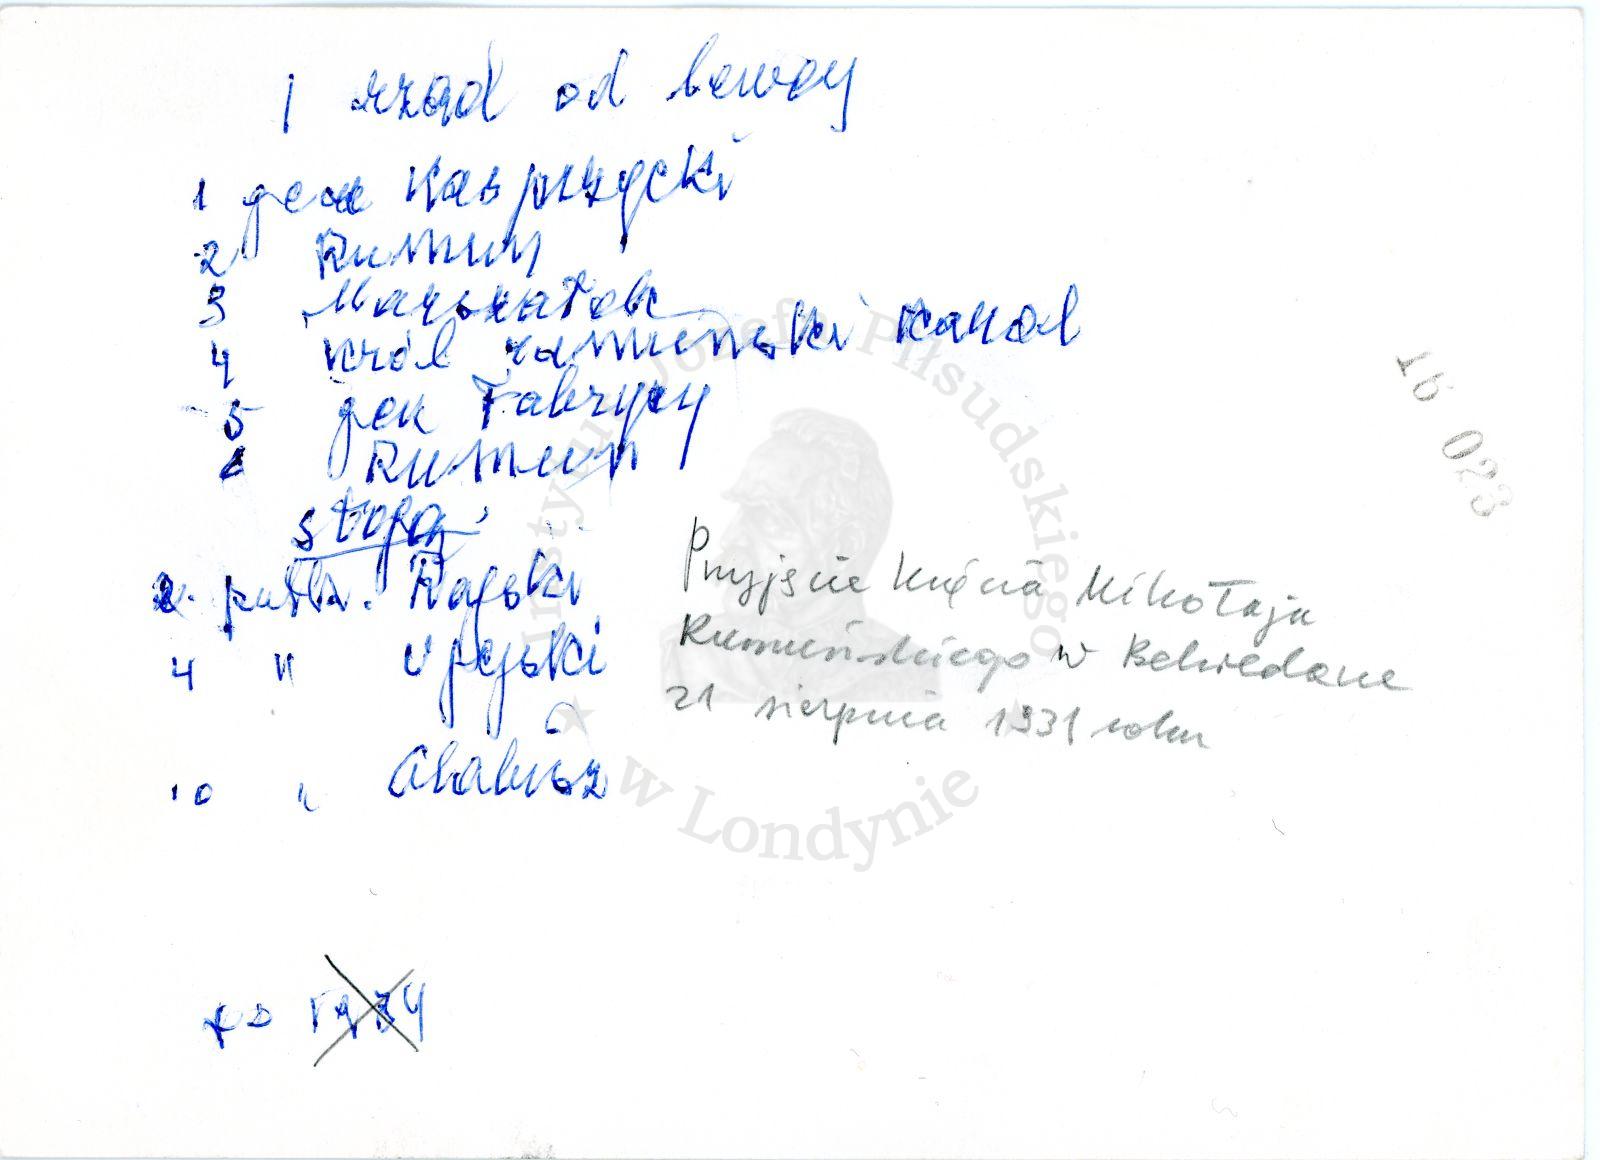 I rząd od lewey
1 gen Kasprzycki
2 Rumun
3 Marszałek
4 król rumuński Karol
5 gen Fabrycy
6 Rumun
stoją
2. pułk. Rayski
4 " Ujejski
10 " Abakuss
po 1934
Przyjęcie Księcia Mikołaja
Rumuńskiego w Belwederze
21 sierpnia 1931 roku
16 023
Instytut Józefa Piłsudskiego
w Londynie